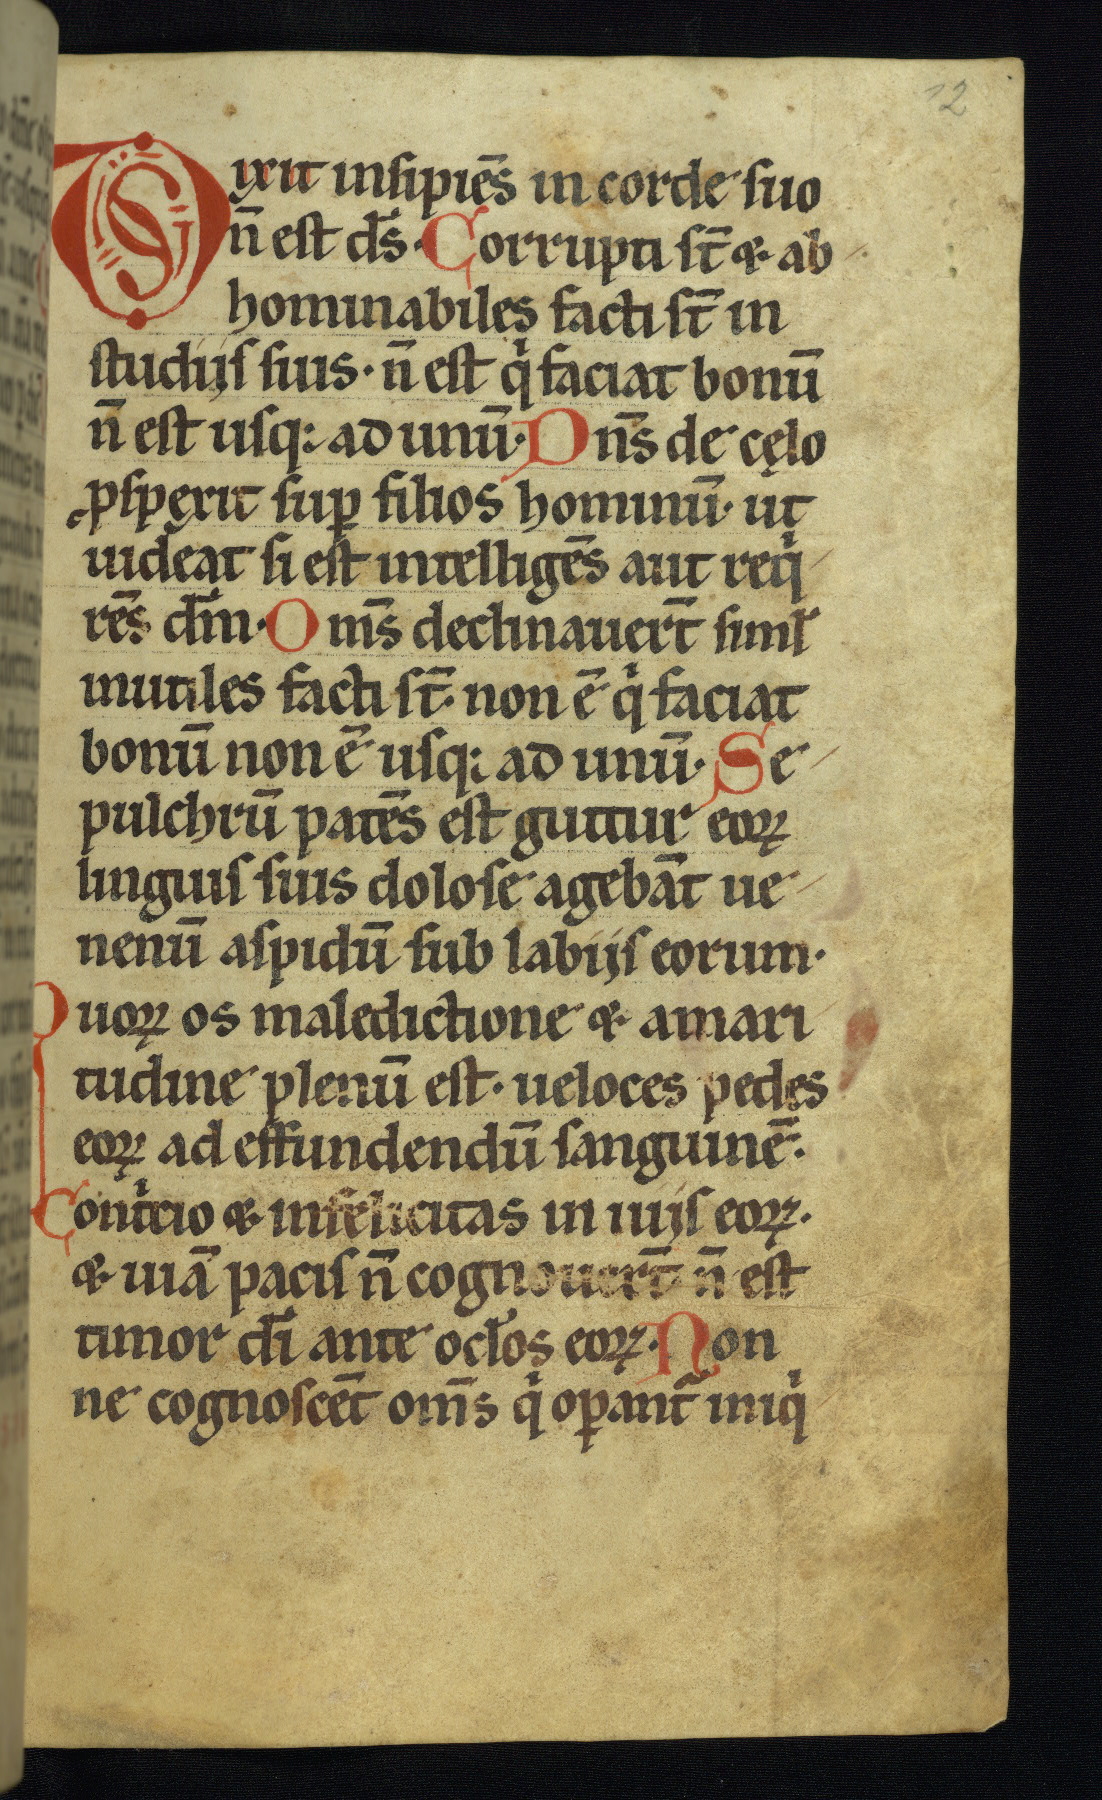 12
Dixit insipiēs in corde suo
n̄ est d̄s. Corrupti st̄ & ab
hominabiles facti st̄ in
studiis suis. n̄ est qͥ faciat bonū
n̄ est usq; ad unū. Dn̄s de cęlo
ꝓspexit sup̱ filios hominū. ut
uideat si est intelligēs aut reqͥ
rēs dm̄. Om̄s declinauer̄t siml̄
inutiles facti st̄. non ē qͥ faciat
bonū non ē usq; ad unū. Se
pulchrū patēs est guttur eoꝝ
linguis suis dolose agebāt ue
nenū aspidū sub labiis eorum.
Quoꝝ os maledictione & amari
tudine plenū est. ueloces pedes
eoꝝ ad effundendū sanguinē.
Contͥcio & infelicitas in uiis eoꝝ.
& uiā pacis n̄ cognouer̄t n̄ est
timor dī ante ocl̄os eoꝝ. Non
ne cognoscēt om̄s qͥ oꝑant̄ iniqͥ